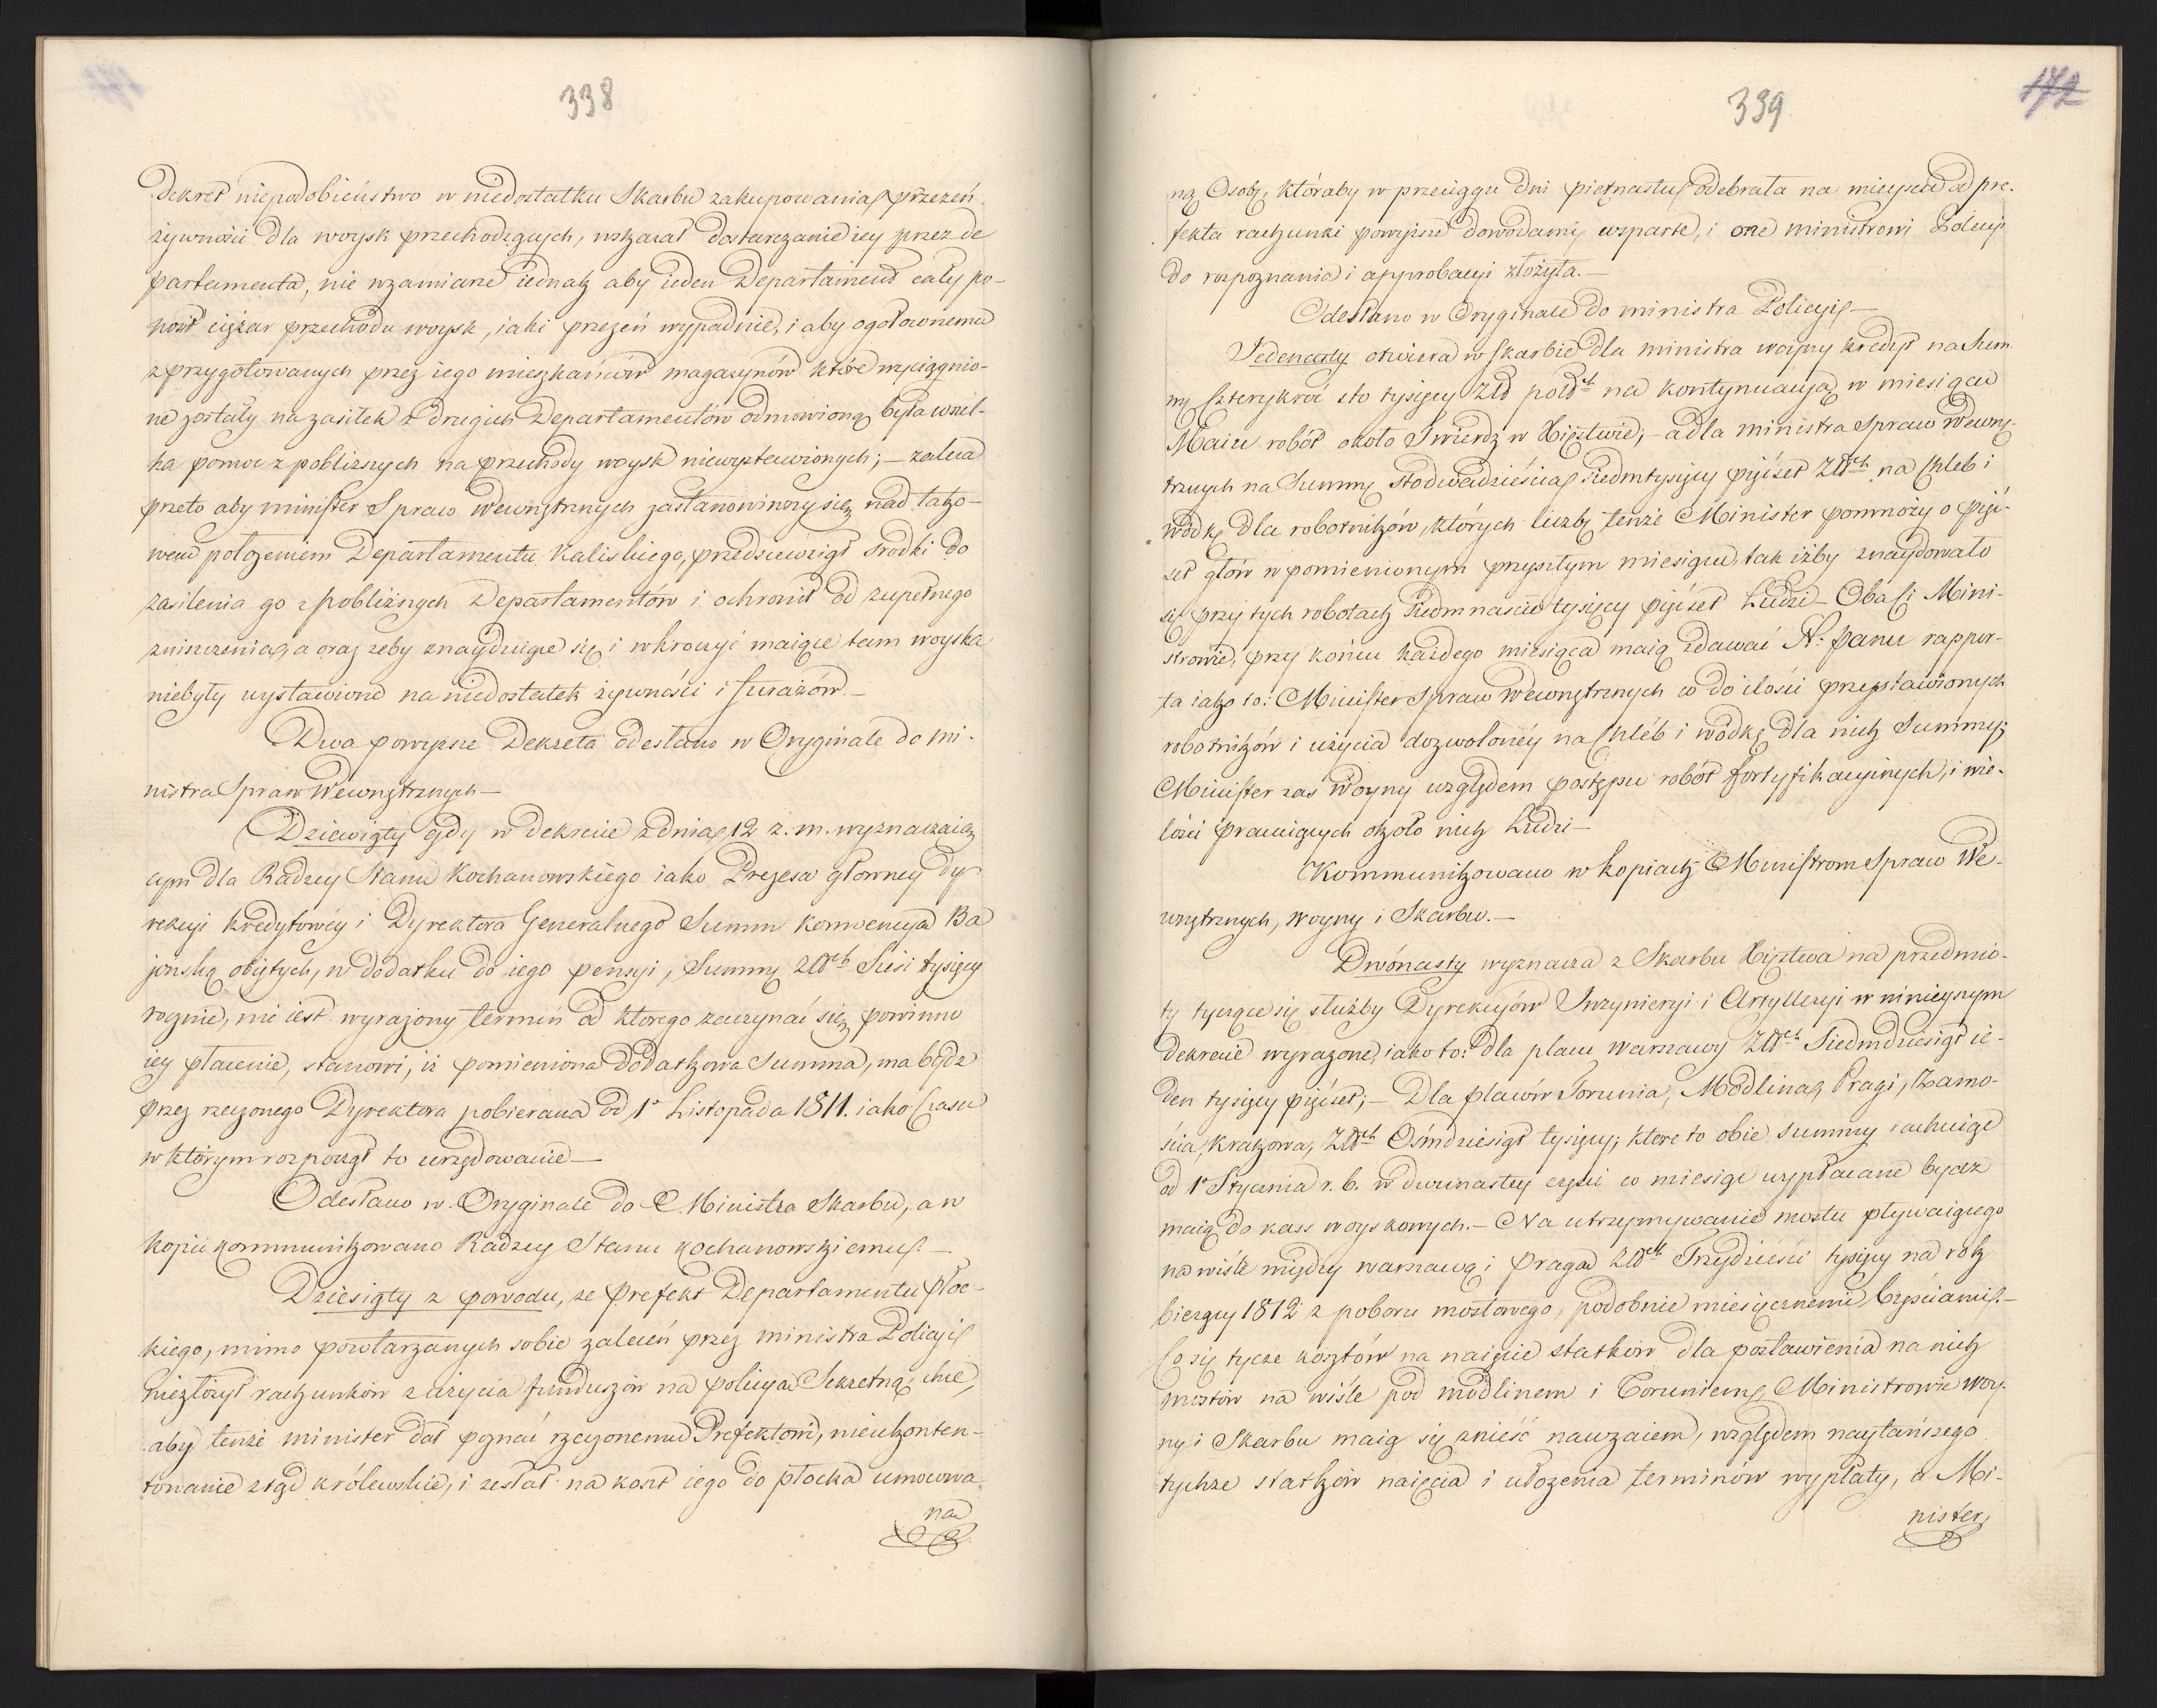 338
Dekret niepodobieństwo w niedostatku Skarbu zakupowania przezeń
żywności dla woysk przechodzących, wskazał dostarczanie iey przez de
partamenta, nie wzamiarze iednak aby ieden Departament cały po-
nosił ciężar przechodu woysk, iaki przezeń wypadnie, i aby ogołoconemu
z przygotowanych przez iego mieszkańców magazynów które wyciągnio-
ne zostały na zasiłek z drugich Departamentów odmówioną była wszel-
ka pomoc z pobliższych na przechody woysk niewystawionych; — zaleca
przeto aby minister Spraw Wewnętrznych zastanowiwszy się nad tako-
wem położeniem Departamentu Kaliskiego, przedsięwziął środki do
zasilenia go z pobliższych Departamentów i ochronił od zupełnego
zniszczenia, a oraz żeby znayduiące się i wkroczyć maiące tam woyska
niebyły wystawione na niedostatek żywności i furażów. —
Dwa powyższe Dekreta odesłano w Oryginale do mi-
nistra Spraw Wewnętrznych —
Dziewiąty gdy w dekrecie z dnia 12 z. m. wyznaczaią
cym dla Radzcy Stanu Kochanowskiego iako Prezesa główney Dy
rekcyi Kredytowéy i Dyrektora Generalnego Summ konwencyą Ba
jońską obiętych, w dodatku do iego pensyi, Summy Złłch Sześć tysięcy
rocznie, nie iest wyrażony termin od ktorego zaczynać się powinno
iey płacenie, stanowi, iż pomieniona Dodatkowa Summa, ma bydź
przez rzeczonego Dyrektora pobierana od 1o Listopada 1811. iako Czasu
w którym rozpoczął to urzędowanie —
Odesłano w Oryginale do Ministra Skarbu, a w
kopii kommunikowano Radzcy Stanu Kochanowskiemu. —
Dziesiąty z powodu, że Prefekt Departamentu Płoc-
kiego, mimo powtarzanych sobie zaleceń przez ministra Policyi
niezłożył rachunków z użycia funduszów na policyą Sekretną; chce,
aby tenże minister dał poznać rzeczonemu Prefektowi, nieukonten-
towanie ztąd królewskie, i zesłał na koszt iego do Płocka umocowa
ną
339
172
ną Osobę, któraby w przeciągu dni piętnastu odebrała na mieyscu od pre-
fekta rachunki powyższe dowodami wsparte, i one ministrowi Policyi
do rozpoznania i approbacyi złożyła. —
Odesłano w Oryginale do ministra Policyi —
Jedenasty otwiera w Skarbie dla ministra woyny kredyt na Sum
mę Czterykroć sto tysięcy Złł polsch na kontynuacyą w miesiącu
Maiu robót około Twierdz w Xięstwie; — a dla ministra Spraw Wewnę-
trznych na Summę Stodwadzieścia Siedmtysięcy pięćset Złłch na Chleb i
wódkę dla robotników, których liczbę tenże Minister pomnoży o pięć-
set głów w pomienionym przyszłym miesiącu, tak iżby znaydowało
się przy tych robotach Siedmnaście tysięcy pięćset Ludzi — Obaci Mini-
strowie, przy końcu każdego miesiąca maią zdawać N. Panu rappor-
ta iako to: Minister Spraw Wewnętrznych co do ilości przystawionych
robotników i użycia dozwolonéy na Chléb i wódkę dla nich Summy;
Minister zaś Woyny względem postępu robót fortyfikacyinych, i wie-
lości pracuiących około nich Ludzi —
Kommunikowano w kopiach Ministrom Spraw We-
wnętrznych, Woyny i Skarbu. —
Dwónasty wyznacza z Skarbu Xięstwa na przedmio-
ty tyczące się służby Dyrekcyów Inżynieryi i Artylleryi w ninieyszym
dekrecie wyrażone, iako to: dla placu Warszawy Złłch Siedmdziesiąt ie-
den tysięcy pięćset; — Dla placów Torunia, Modlina, Pragi, Zamo-
ścia, Krakowa, Złłch Ośmdziesiąt tysięcy; ktore to obie summy rachuiąc
od 1o Stycznia r. b. w dwunastey części co miesiąc wypłacane bydź
maią do kass woyskowych. — Na utrzymywanie mostu pływaiącego
na wiśle między Warszawą i Pragą Złłch Trzydzieści tysięcy na rok
bieżący 1812 z poboru mostowego, podobnie miesięcznemi Częściami. —
Co się tycze kosztów na naięcie statków dla postawienia na nich
mostów na wiśle pod modlinem i Toruniem, Ministrowie woy-
ny i Skarbu maią się znieść nawzaiem, względem naytańszego
tychże statków naięcia i ułożenia terminów wypłaty, a Mi-
nister